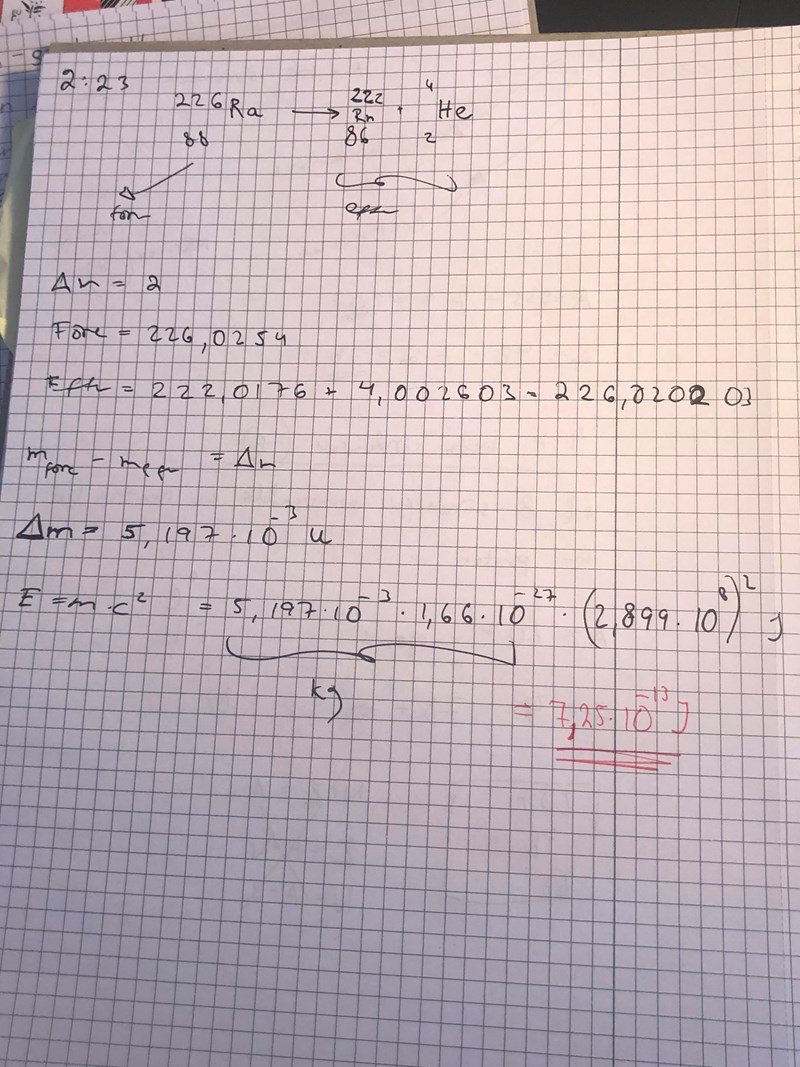 2:23
226 Ra → 222 Rn + 4 He
88 86 2
för efter
Δm = 2
Före = 226,0254
Efter = 222,0176 + 4,002603 = 226,020203
m före - m efter = Δm
Δm = 5,197·10⁻³ u
E = m·c² = 5,197·10⁻³ · 1,66·10⁻²⁷ · (2,899·10⁸)² J
kg
= 7,25·10⁻¹³ J